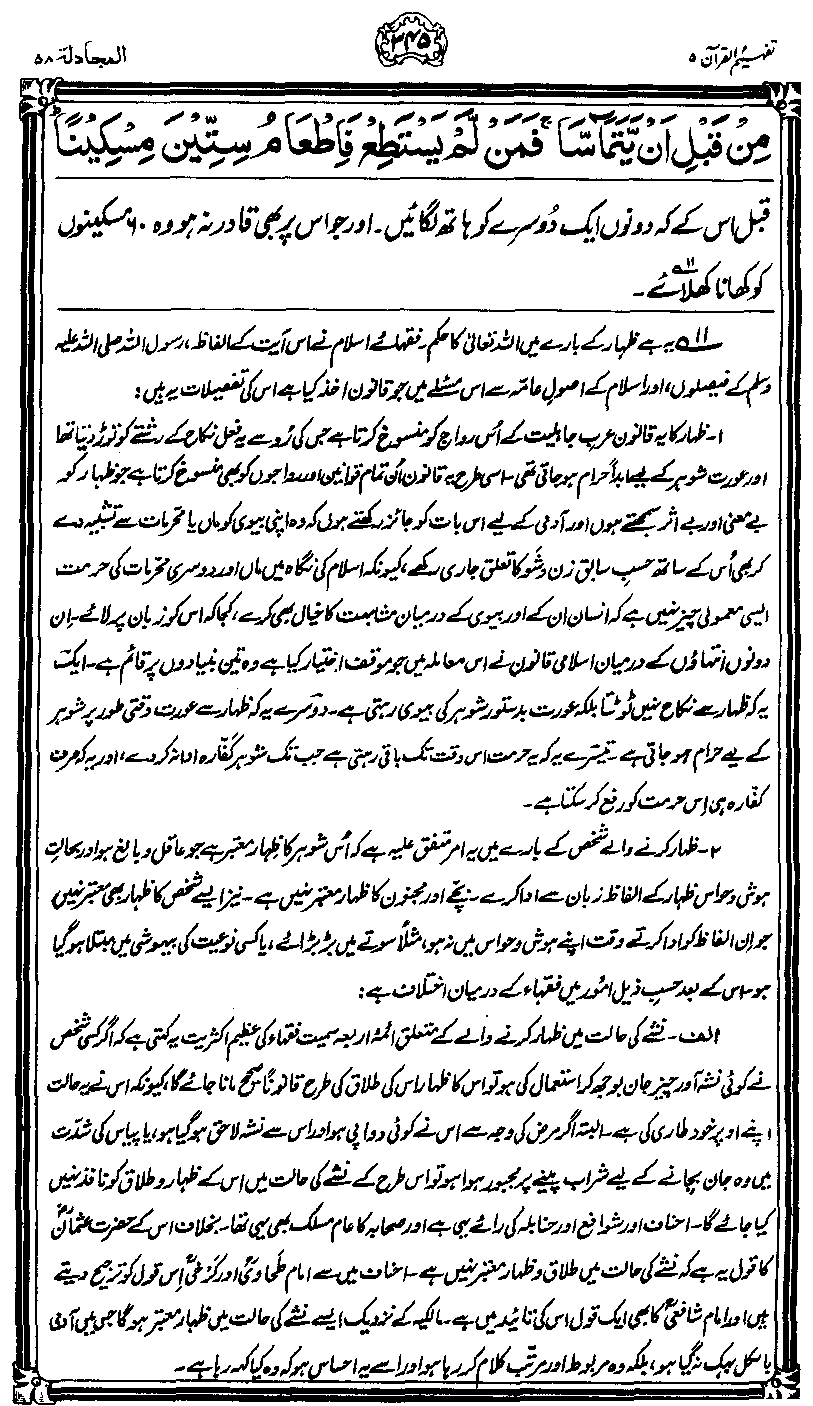 تفہیم القرآن ۵
۳۴۵
المجادلة ۵۸
مِنْ قَبْلِ اَنْ يَّتَمَآسَّا ۚ فَمَنْ لَّمْ يَسْتَطِعْ فَاِطْعَامُ سِتِّيْنَ مِسْكِيْنًا ؕ
قبل اس کے کہ دونوں ایک دُوسرے کو ہاتھ لگائیں۔ اور جو اس پر بھی قادر نہ ہو وہ ۶۰ مسکینوں
کو کھانا کھلائے ۱۱؎۔
۱۱؎ یہ ہے ظہار کے بارے میں اللہ تعالیٰ کا حکم۔ فقہائے اسلام نے اس آیت کے الفاظ، رسول اللہ صلی اللہ علیہ
وسلم کے فیصلوں، اور اسلام کے اصولِ عامّہ سے اس مسئلے میں جو قانون اخذ کیا ہے اس کی تفصیلات یہ ہیں:
۱۔ ظہار کا یہ قانون عرب جاہلیت کے اُس رواج کو منسوخ کرتا ہے جس کی رُو سے یہ فعل نکاح کے رشتے کو توڑ دیتا تھا
اور عورت شوہر کے لیے ابداً حرام ہو جاتی تھی۔ اسی طرح یہ قانون اُن تمام قوانین اور رواجوں کو بھی منسوخ کرتا ہے جو ظہار کو
بے معنی اور بے اثر سمجھتے ہوں اور آدمی کے لیے اس بات کو جائز رکھتے ہوں کہ وہ اپنی بیوی کو ماں یا محرمات سے تشبیہ دے
کر بھی اُس کے ساتھ حسبِ سابق زن و شو کا تعلق جاری رکھے، کیونکہ اسلام کی نگاہ میں ماں اور دوسری محرمات کی حرمت
ایسی معمولی چیز نہیں ہے کہ انسان ان کے اور بیوی کے درمیان مشابہت کا خیال بھی کرے، کجا کہ اس کو زبان پر لائے۔ اِن
دونوں انتہاؤں کے درمیان اسلامی قانون نے اس معاملہ میں جو موقف اختیار کیا ہے وہ تین بنیادوں پر قائم ہے۔ ایک
یہ کہ ظہار سے نکاح نہیں ٹوٹتا بلکہ عورت بدستور شوہر کی بیوی رہتی ہے۔ دوسرے یہ کہ ظہار سے عورت وقتی طور پر شوہر
کے لیے حرام ہو جاتی ہے۔ تیسرے یہ کہ یہ حرمت اس وقت تک باقی رہتی ہے جب تک شوہر کفّارہ ادا نہ کر دے، اور یہ کہ صرف
کفّارہ ہی اِس حرمت کو رفع کر سکتا ہے۔
۲۔ ظہار کرنے والے شخص کے بارے میں یہ امر متفق علیہ ہے کہ اُس شوہر کا ظہار معتبر ہے جو عاقل و بالغ ہو اور بحالتِ
ہوش و حواس ظہار کے الفاظ زبان سے ادا کرے۔ بچّے اور مجنون کا ظہار معتبر نہیں ہے۔ نیز ایسے شخص کا ظہار بھی معتبر نہیں
جو اِن الفاظ کو ادا کرتے وقت اپنے ہوش و حواس میں نہ ہو، مثلاً سوتے میں بڑبڑائے، یا کسی نوعیت کی بیہوشی میں مبتلا ہو گیا
ہو۔ اس کے بعد حسبِ ذیل امور میں فقہاء کے درمیان اختلاف ہے:
الف۔ نشے کی حالت میں ظہار کرنے والے کے متعلق ائمۂ اربعہ سمیت فقہاء کی عظیم اکثریت یہ کہتی ہے کہ اگر کسی شخص
نے کوئی نشہ آور چیز جان بوجھ کر استعمال کی ہو تو اس کا ظہار اس کی طلاق کی طرح قانوناً صحیح مانا جائے گا، کیونکہ اس نے یہ حالت
اپنے اوپر خود طاری کی ہے۔ البتہ اگر مرض کی وجہ سے اس نے کوئی دوا پی ہو اور اس سے نشہ لاحق ہو گیا ہو، یا پیاس کی شدّت
میں وہ جان بچانے کے لیے شراب پینے پر مجبور ہوا ہو تو اس طرح کے نشے کی حالت میں اس کے ظہار و طلاق کو نافذ نہیں
کیا جائے گا۔ احناف اور شوافع اور حنابلہ کی رائے یہی ہے اور صحابہ کا عام مسلک بھی یہی تھا۔ بخلاف اس کے حضرت عثمانؓ
کا قول یہ ہے کہ نشے کی حالت میں طلاق و ظہار معتبر نہیں ہے۔ احناف میں سے امام طحاویؒ اور کرخیؒ اِس قول کو ترجیح دیتے
ہیں اور امام شافعیؒ کا بھی ایک قول اس کی تائید میں ہے۔ مالکیہ کے نزدیک ایسے نشے کی حالت میں ظہار معتبر ہوگا جس میں آدمی
بالکل بہک نہ گیا ہو، بلکہ وہ مربوط اور مرتب کلام کر رہا ہو اور اسے یہ احساس ہو کہ وہ کیا کہہ رہا ہے۔